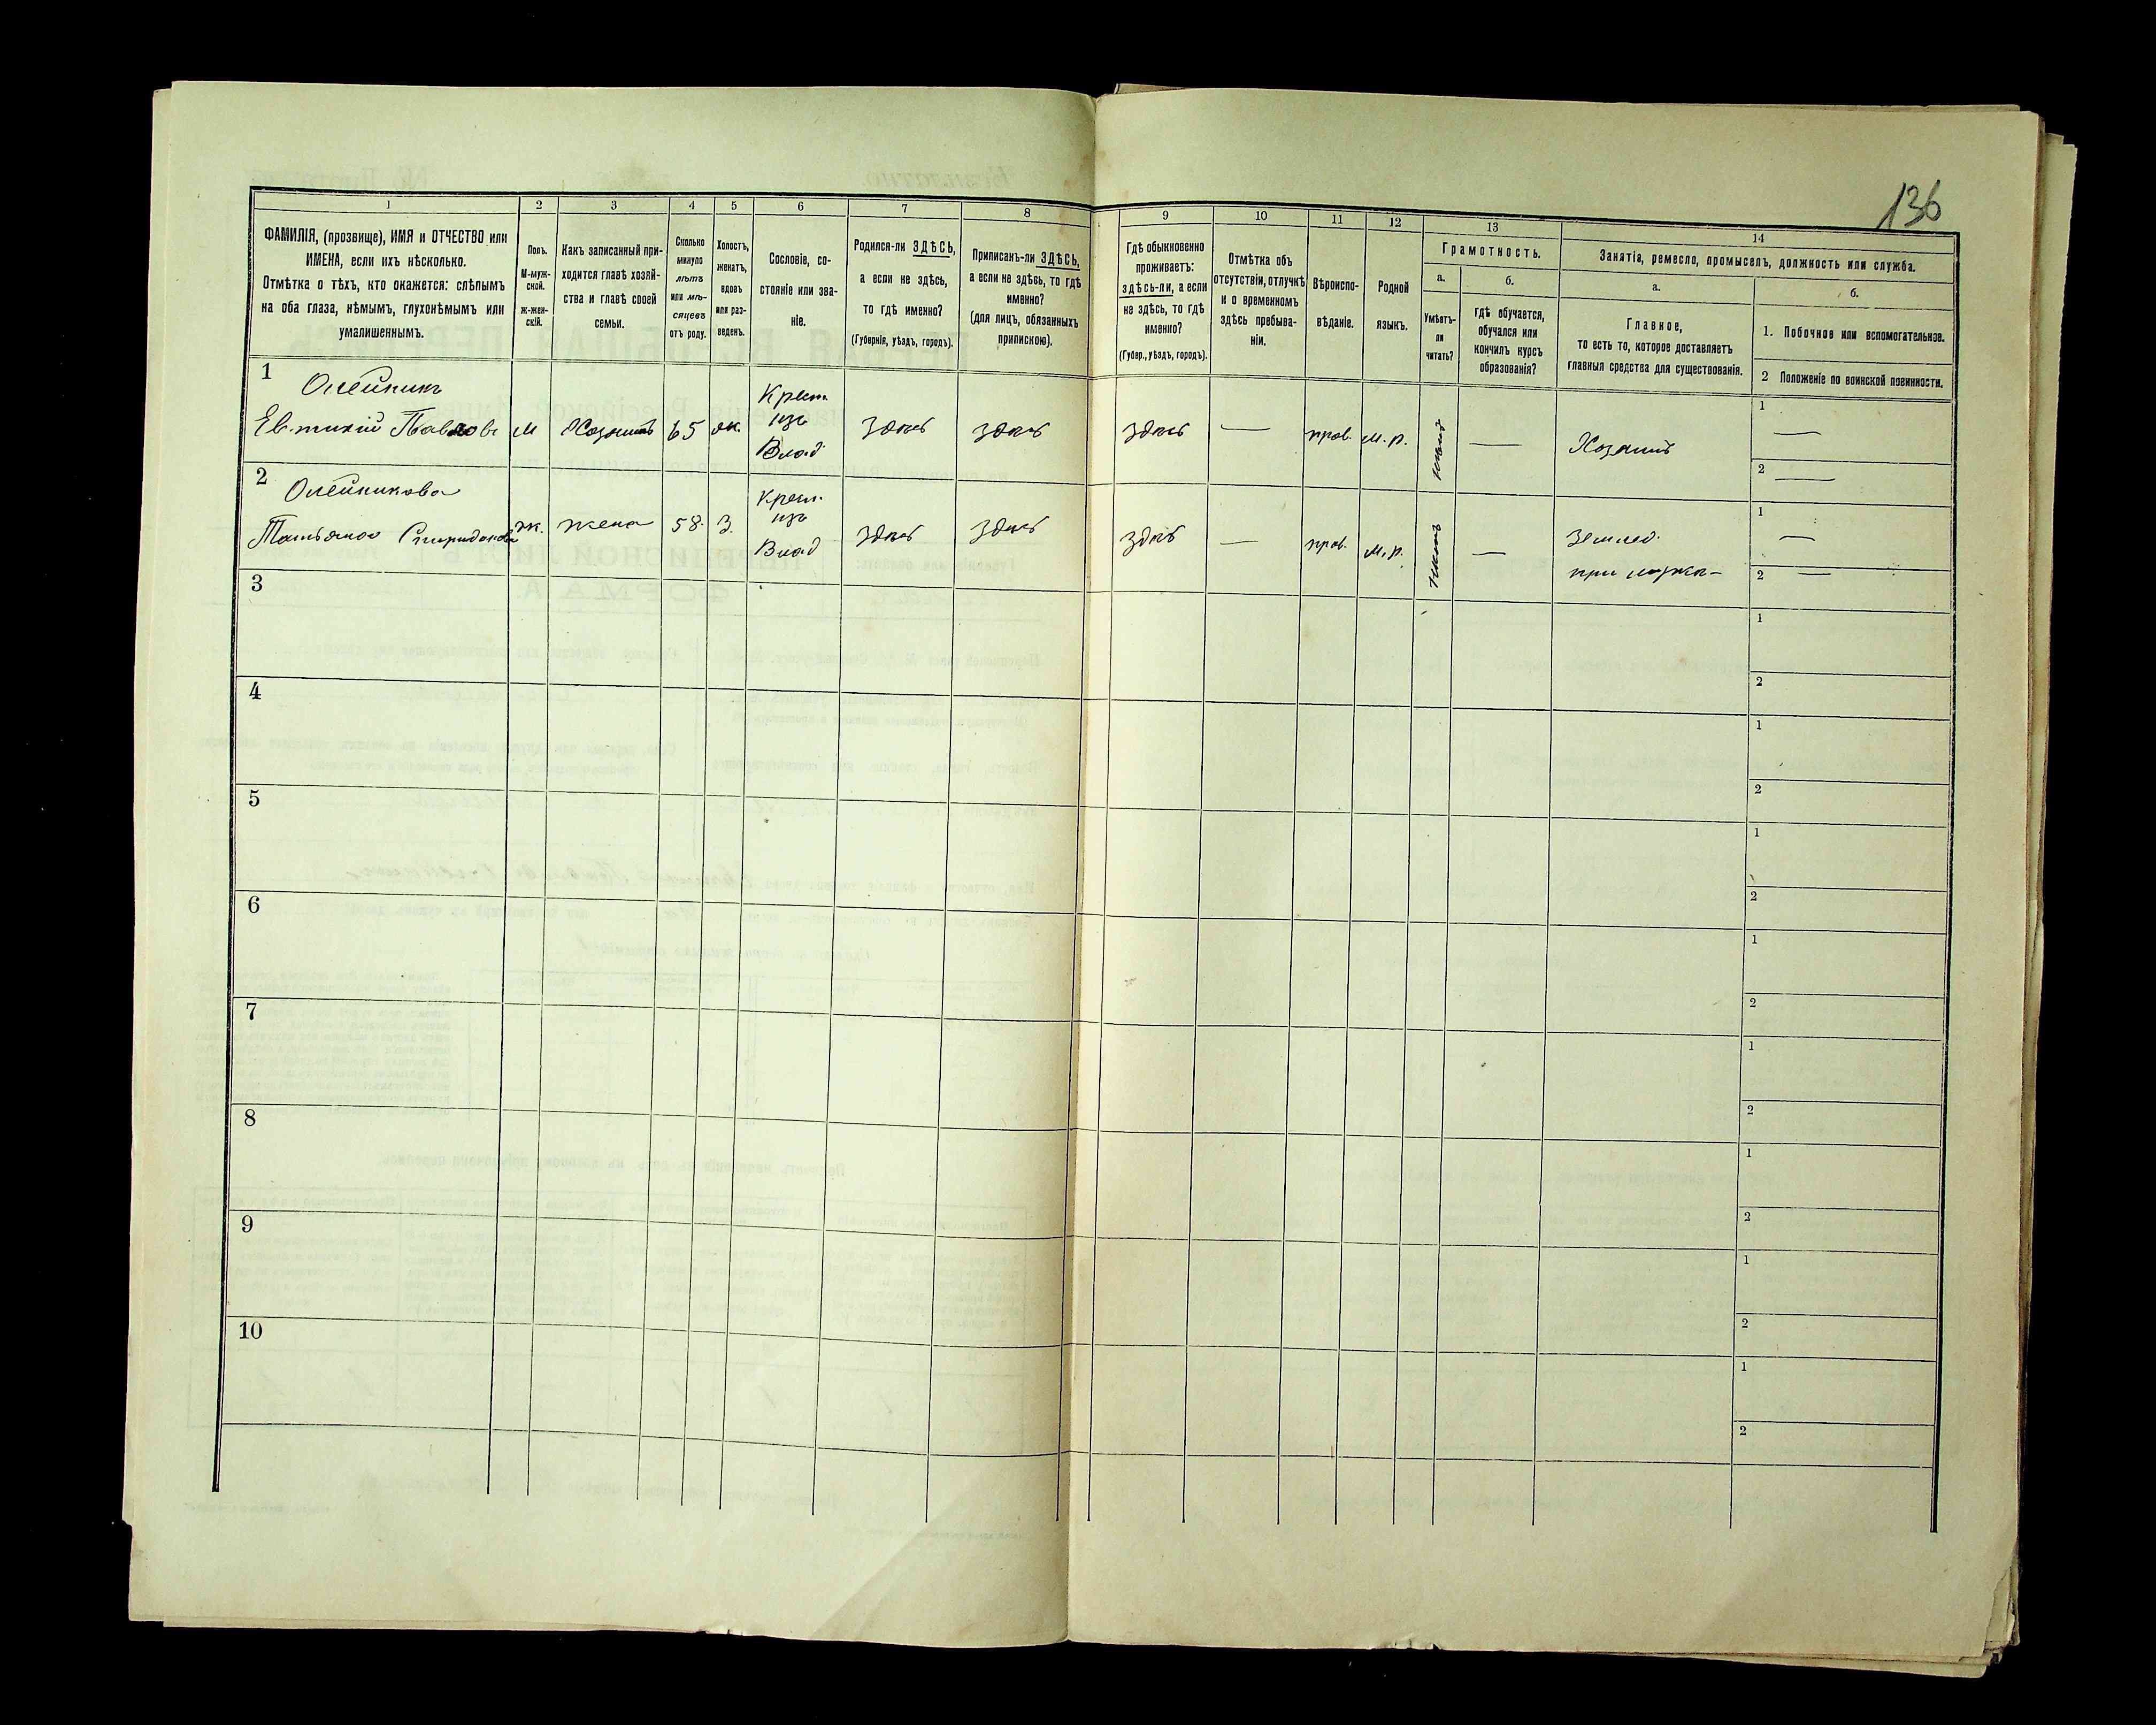 136
1 2 3 4 5 6 7 8 9 10 11 12 13 14
ФАМИЛІЯ, (прозвище), ИМЯ и ОТЧЕСТВО или
ИМЕНА, если ихъ нѣсколько.
Отмѣтка о тѣхъ, кто окажется: слѣпымъ
на оба глаза, нѣмымъ, глухонѣмымъ или
умалишеннымъ.
Полъ.
М-муж-
ской.
ж-жен-
скій.
Какъ записанный при-
ходится главѣ хозяй-
ства и главѣ своей
семьи.
Сколько
минуло
лѣтъ
или мѣ-
сяцевъ
отъ роду.
Холостъ,
женатъ,
вдовъ
или раз-
веденъ.
Сословіе, со-
стояніе или зва-
ніе.
Родился-ли ЗДѢСЬ,
а если не здѣсь,
то гдѣ именно?
(Губернія, уѣздъ, городъ).
Приписанъ-ли ЗДѢСЬ,
а если не здѣсь, то гдѣ
именно?
(для лицъ, обязанныхъ
припискою).
Гдѣ обыкновенно
проживаетъ:
здѣсь-ли, а если
не здѣсь, то гдѣ
именно?
(Губер., уѣздъ, городъ).
Отмѣтка объ
отсутствіи, отлучкѣ
и о временномъ
здѣсь пребыва-
ніи.
Вѣроиспо-
вѣданіе.
Родной
языкъ.
Грамотность.
а.
Умѣетъ-
ли
читать?
б.
гдѣ обучается,
обучался или
кончилъ курсъ
образованія?
Занятіе, ремесло, промыселъ, должность или служба.
а.
Главное,
то есть то, которое доставляетъ
главныя средства для существованія.
б.
1. Побочное или вспомогательное.
2 Положеніе по воинской повинности.
1 Олейникъ
Евтихій Павловъ м Хозяинъ 65 ж. Крест. изъ Влад здѣсь здѣсь здѣсь — прав. м.р. — Хозяинъ 1 — 2 —
2 Олейникова
Татьяна Спиридонова ж. жена 58. З. Крест. изъ Влад здѣсь здѣсь здѣсь — прав. м.р. нѣтъ — Землед. при мужѣ 1 — 2 —
3 1 2
4 1 2
5 1 2
6 1 2
7 1 2
8 1 2
9 1 2
10 1 2